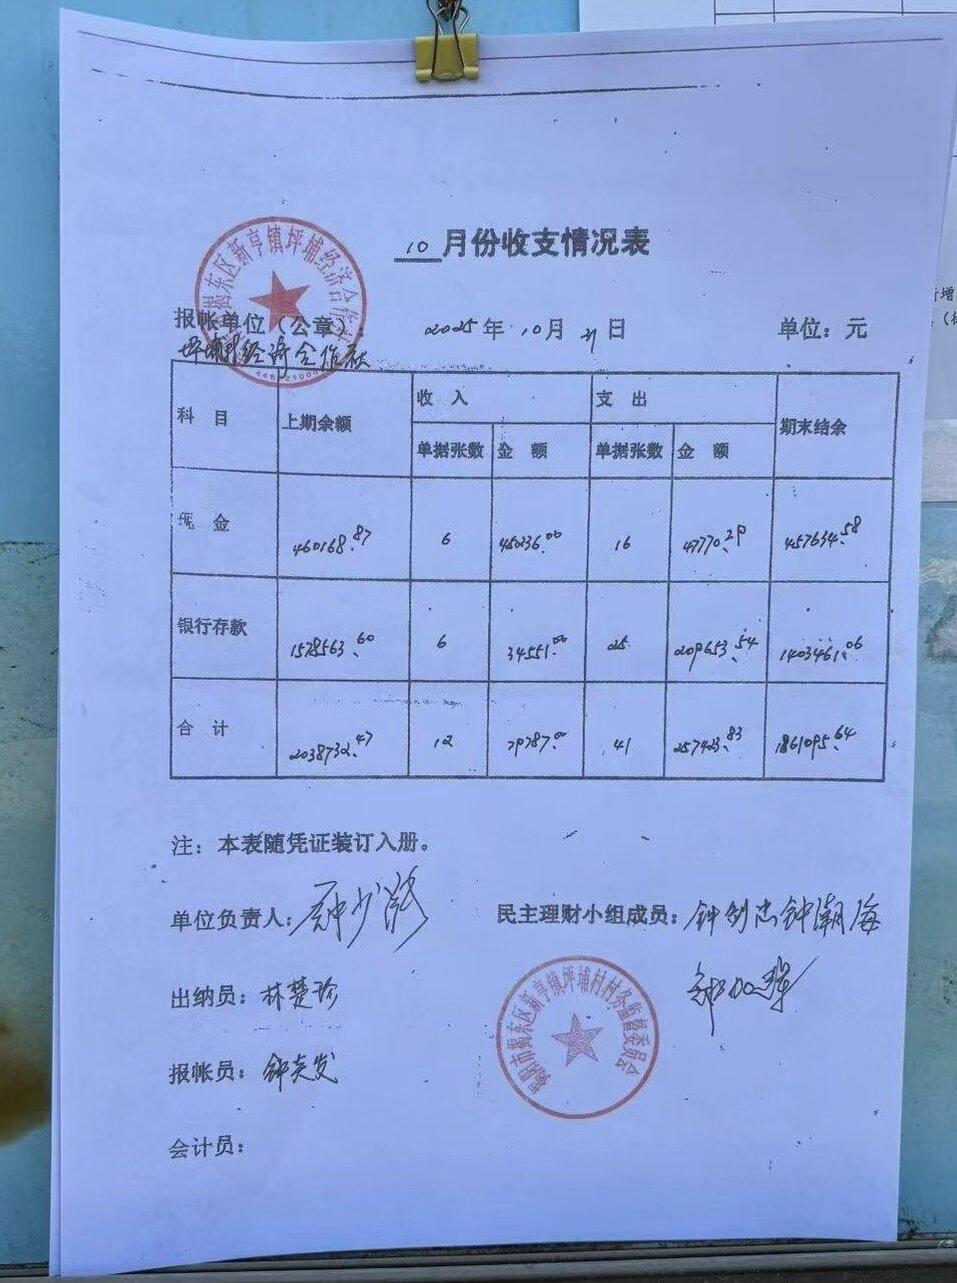 10月份收支情况表
揭东区新亨镇坪埔经济合作
报帐单位（公章）：
2025年10月31日
单位：元
坪埔村经济合作社
科目 上期余额 收入 支出 期末结余
单据张数 金额 单据张数 金额
现金 460168.87 6 45236.00 16 47770.29 457634.58
银行存款 1578563.60 6 34551.00 25 209653.54 1403461.06
合计 2038732.47 12 79787.00 41 257423.83 1861095.64
注：本表随凭证装订入册。
单位负责人：钟少
民主理财小组成员：钟剑忠 钟潮海
出纳员：林楚珍
揭阳市揭东区新亨镇坪埔村村务监督委员会
报帐员：钟奕发
会计员：